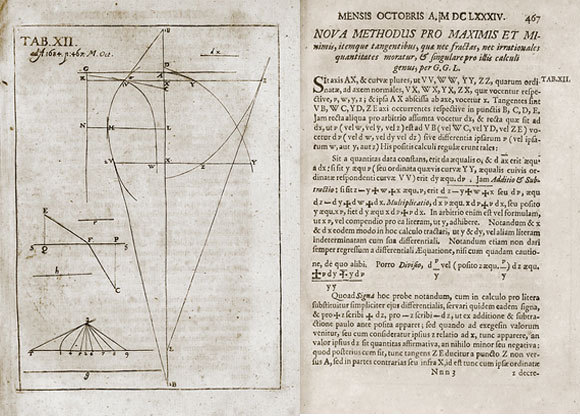 TAB.XII.
ad A 1684. p: 467. M. Oct.
MENSIS OCTOBRIS A. M DC LXXXIV. 467
NOVA METHODUS PRO MAXIMIS ET MI-
nimis, itemque tangentibus, quæ nec fractas, nec irrationales
quantitates moratur, & singulare pro illis calculi
genus, per G. G. L.
Sit axis AX, & curvæ plures, ut VV, WW, YY, ZZ, quarum ordi- TAB.XII.
natæ, ad axem normales, VX, WX, YX, ZX, quæ vocentur respec-
tive, v, w, y, z; & ipsa AX abscissa ab axe, vocetur x. Tangentes sint
VB, WC, YD, ZE axi occurrentes respective in punctis B, C, D, E.
Jam recta aliqua pro arbitrio assumta vocetur dx, & recta quæ sit ad
dx, ut v (vel w, vel y, vel z) est ad VB (vel WC, vel YD, vel ZE) vo-
cetur dv (vel dw, vel dy vel dz) sive differentia ipsarum v (vel ipsa-
rum w, aut y, aut z) His positis calculi regulæ erunt tales:
Sit a quantitas data constans, erit da æqualis 0, & d ax erit æqu.
a dx: si sit y æqu. v (seu ordinata quævis curvæ YY, æqualis cuivis or-
dinatæ respondenti curvæ VV) erit dy æqu. dv. Jam Additio & Sub-
tractio: si sit z - y + w + x æqu. v, erit d z - y + w + x seu dv, æqu.
dz - dy + dw + dx. Multiplicatio, d x v æqu. x dv + v dx, seu posito
y æqu. xv, fiet dy æqu. x dv + v dx. In arbitrio enim est vel formulam,
ut xv, vel compendio pro ea literam, ut y, adhibere. Notandum & x
& dx eodem modo in hoc calculo tractari, ut y & dy, vel aliam literam
indeterminatam cum sua differentiali. Notandum etiam non dari
semper regressum a differentiali Æquatione, nisi cum quadam cautio-
ne, de quo alibi. Porro Divisio, d v/y vel (posito z æqu. v/y) dz æqu.
± v dy ∓ y dv
yy
Quoad Signa hoc probe notandum, cum in calculo pro litera
substituitur simpliciter ejus differentialis, servari quidem eadem signa,
& pro + z scribi + dz, pro - z scribi - dz, ut ex additione & subtra-
ctione paulo ante posita apparet; sed quando ad exegesin valorum
venitur, seu cum consideratur ipsius z relatio ad x, tunc apparere, an
valor ipsius dz sit quantitas affirmativa, an nihilo minor seu negativa:
quod posterius cum sit, tunc tangens ZE ducitur a puncto Z non ver-
sus A, sed in partes contrarias seu infra X, id est tunc cum ipsæ ordinatæ
Nnn 3 z decre-